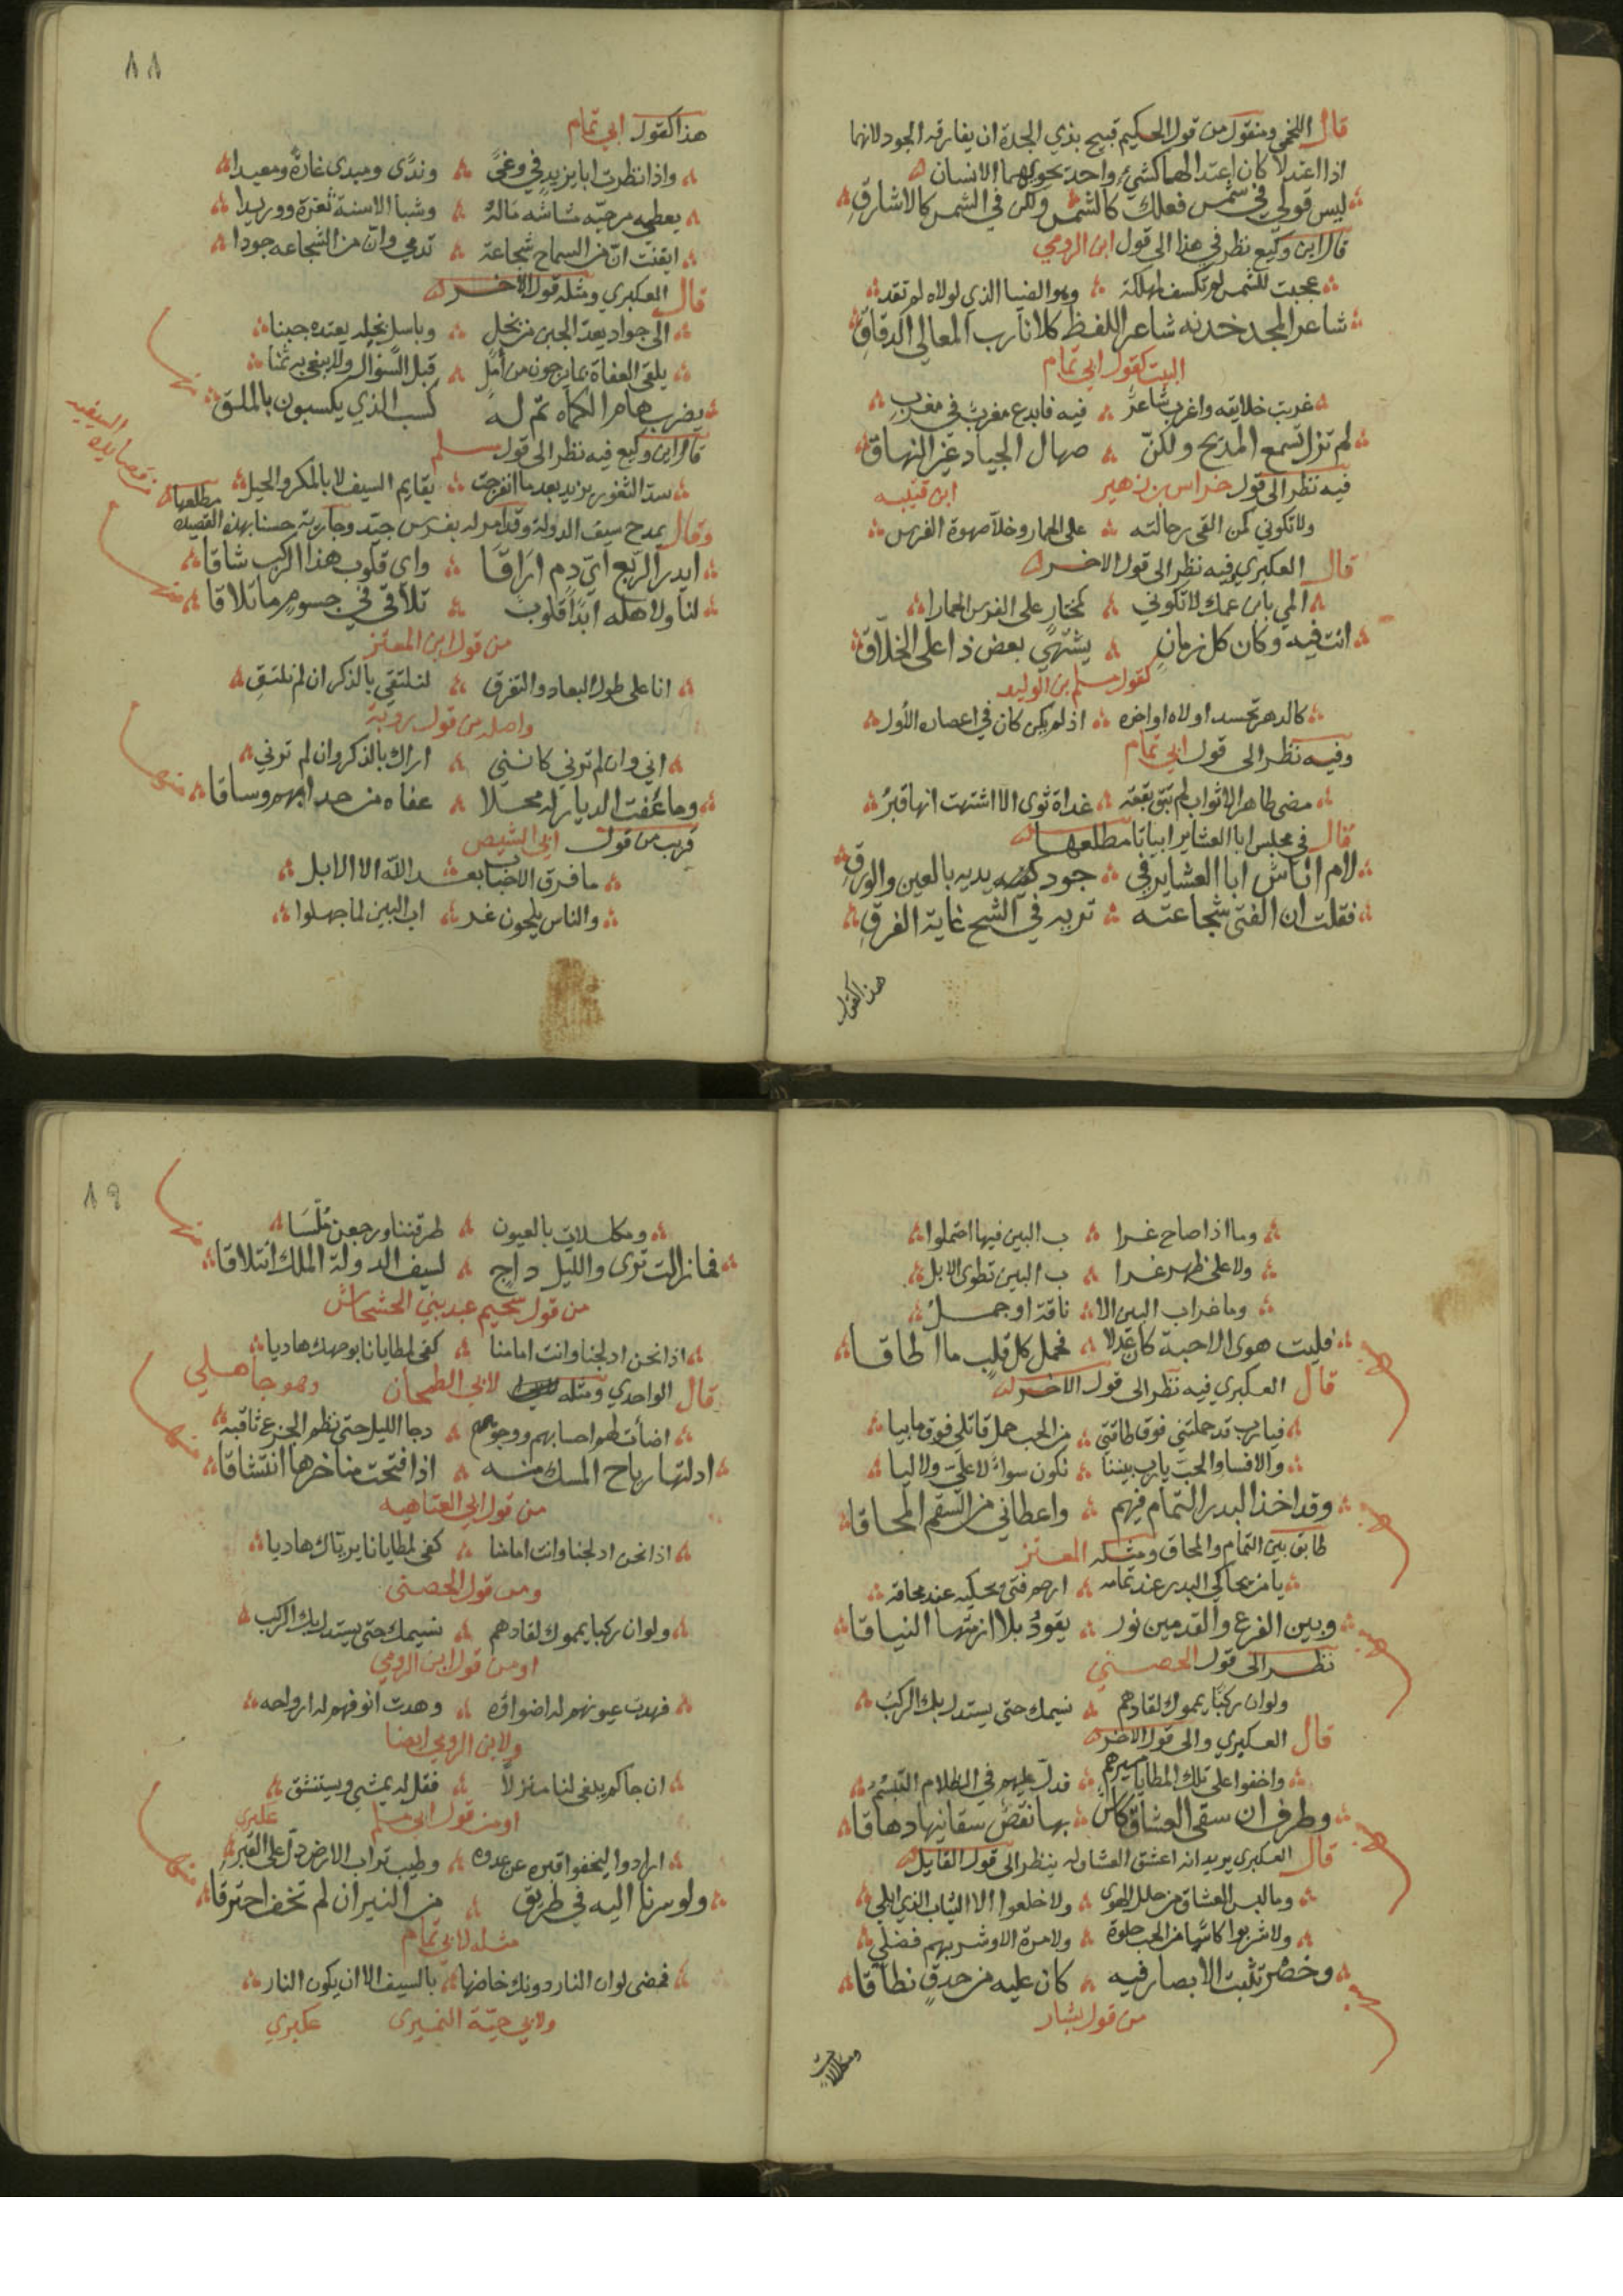 قال اللخمي ومنقول من قول الحكيم قبيح بذي الجدة ان يفارقه الجود لانهما
اذا اعتدلا كان اعتدالهما كشيء واحد يحويهما الانسان
ليس قولي في شمس فعلك كالشمس ولكن في الشمس كالاشراق
قال ابن وكيع نظر في هذا الى قول ابن الرومي
عجبت للشمس لم تكسف لمهلكه وهو الضيا الذي لولاه لم تقد
شاعر المجد خدنه شاعر اللفظ كلانا رب المعالي الدقاق
البيت كقول ابي تمام
غربت خلايقه واغرب شاعر فيه فابدع مغرب في مغرب
لم تزل تسمع المديح ولكن صهال الجياد غير النهاق
فيه نظر الى قول خراس بن زهير ابن قتيبه
ولا تكوني كمن القى رحالته على الحمار وخلا صهوة الفرس
قال العكبري وفيه نظر الى قول الاخر
المي بابن عمك لا تكوني كمختار على الفرس الحمارا
انت فيه وكان كل زمان يشتهي بعض ذا على الخلاق
كقول مسلم بن الوليد
كالدهر تحسد اولاه اواخره اذ لم يكن كان في اعصاره الأول
وفيه نظر الى قول ابي تمام
مضى طاهر الاثواب لم تبق بقعة غداة ثوى الا اشتهت انها قبر
قال في مجلس ابا العشاير ابياتا مطلعها
لام اناس ابا العشاير في جود يديه بالعين والورق
فقلت ان الفتى شجاعته تريه في الشح غاية الفرق
هذا كقول
٨٨
هذا كقول ابي تمام
واذا نظرت ابا يزيد في وغى وندى ومبدى غارة ومعيدا
يعطي مرجيه حشاشه ماله وشبا الاسنة ثغرة ووريدا
ايقنت ان من السماح شجاعة تدمي وان من الشجاعه جودا
قال العكبري ومثله قول الاخر
الى جواد يعد الجبن من بخل وباسل بخله يعتده جبنا
يلقى العفاة بما يرجون من امل قبل السؤال ولا يبغي به ثمنا
يضرب هام الكماه تم له كسب الذي يكسبون بالملق
قال ابن وكيع فيه نظر الى قول مسلم
سد الثغور يزيد بعد ما انفرجت بقايم السيف لا بالمكر والحيل
وقال يمدح سيف الدولة وقد امر له بفرس جيد وجارية حسنا بهذه القصيده مطلعها
من قصايده السيفيه
ايدر الربع اي دم اراقا واي قلوب هذا الركب شاقا
لنا ولاهله ابدا قلوب تلاقى في جسوم ما تلاقا
من قول ابن المعتز
انا على طول البعاد والتفرق لنلتقي بالذكر ان لم نلتق
واصله من قول روبة
اني وان لم ترني كانني اراك بالذكر وان لم ترني
وما عفت الديار له محلا عفاه من حدا بهم وساقا
قريب من قول ابي الشيص
ما فرق الاحباب بعد الله الا الابل
والناس يلحون غراب البين لما جهلوا
وما اذا صاح غرا ب البين فيها احتملوا
ولا على ظهر غرا ب البين تطوى الابل
وما غراب البين الا ناقة او جمل
فليت هوى الاحبة كان عدلا فحمل كل قلب ما اطاقا
قال العكبري فيه نظر الى قول الاخر
فيا رب قد حملتني فوق طاقتي من الحب حملا قاتلي فوق ما بيا
والا فساو الحب يا رب بيننا نكون سواء لا علي ولا ليا
وقد اخذ البدر التمام فيهم واعطاني من السقم المحاقا
طابق بين التمام والمحاق ومثله المعتز
يا من يحاكي البدر عند تمامه ارحم فتى يحكيه عند محاقه
وبين الفرع والقدمين نور يقود بلا ازمتها النياقا
نظر الى قول الحصني
ولو ان ركبا يمموك لقادهم نسيمك حتى يستدل بك الركب
قال العكبري والى قول الاخر
واخفوا على تلك المطايا مسيرهم فدل عليهم في الظلام التبسم
وطرف ان سقى العشاق كاس بها نقص سقانيها دهاقا
قال العكبري يريد انه اعشق العشاق ينظر الى قول القايل
وما لبس العشاق من حلل الهوى ولا خلعوا الا الثياب الذي ابلي
ولا شربوا كاسا من الحب حلوة ولا مرة الا وشربهم فضلي
وخصر تثبت الابصار فيه كان عليه من حدق نطاقا
من قول بشار
ومكللات
٨٩
ومكللات بالعيون طرقننا ورجعن ملسا
فما زالت ترى والليل داج لسيف الدولة الملك ائتلاقا
من قول سحيم عبد بني الحسحاس
اذا نحن ادلجنا وانت امامنا كفى لمطايانا بوجهك هاديا
قال الواحدي ومثله لابي الطمحان وهو جاهلي
اضأت لهم احسابهم ووجوههم دجا الليل حتى نظم الجزع ثاقبه
ادلتها رياح المسك منه اذا فتحت مناخرها انتشاقا
من قول ابي العتاهيه
اذا نحن ادلجنا وانت امامنا كفى لمطايانا برياك هاديا
ومن قول الحصنى
ولو ان ركبا يمموك لقادهم نسيمك حتى يستدل بك الركب
او من قول ابن الرومي
فهدت عيونهم له اضواؤه وهدت انوفهم له ارواحه
ولابن الرومي ايضا
ان جا كم يبغى لنا منزلا فقل له يمشي ويستنشق
او من قول ابي مسلم عكبري
ارادوا ليخفوا قبره عن عدوه وطيب تراب الارض دل على القبر
ولو سرنا اليه في طريق من النيران لم نخف احتراقا
مثله لابي تمام
فمضى لو ان النار دونك خاضها بالسيف الا ان يكون النار
ولابي حية النميرى عكبري